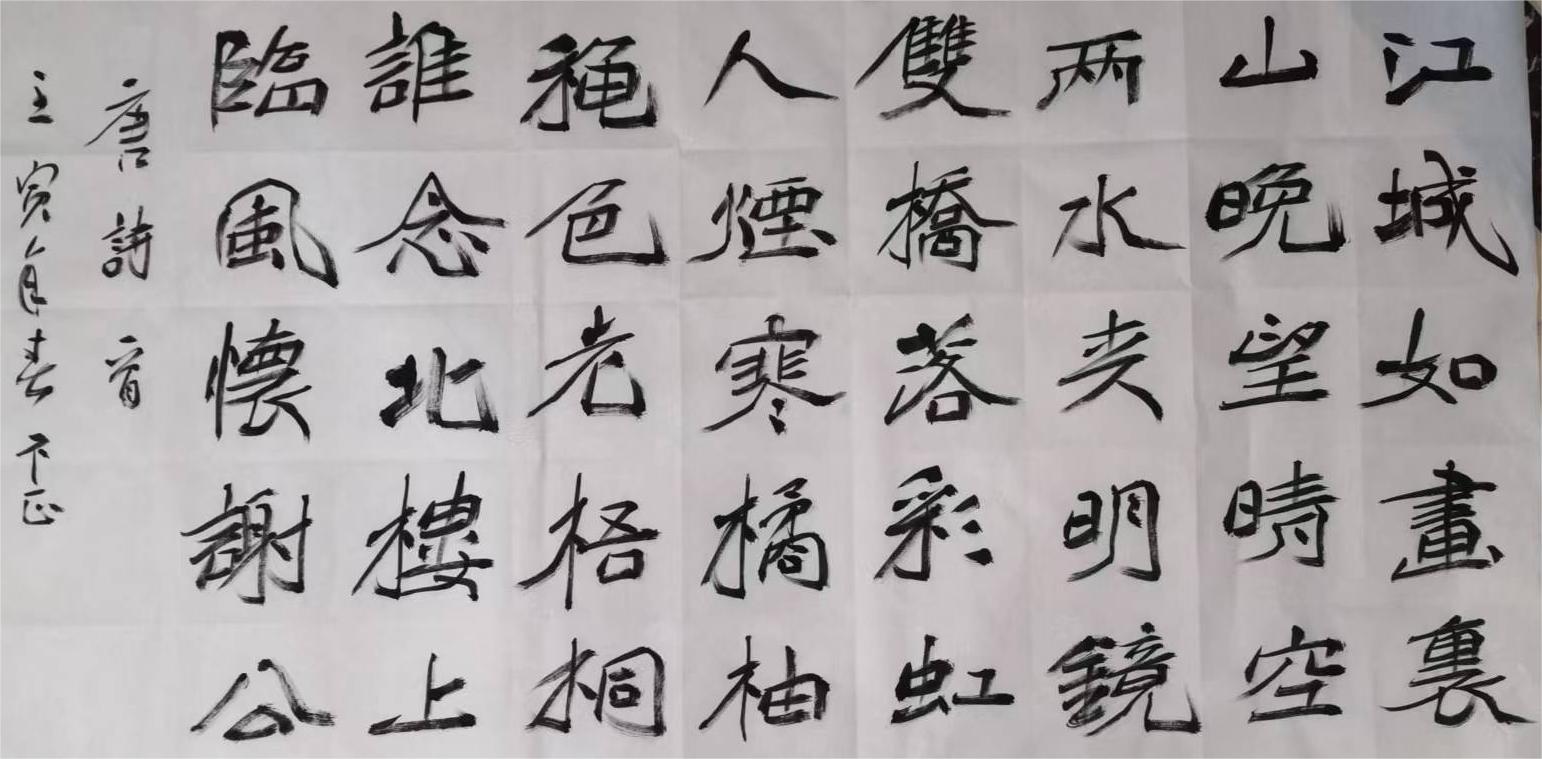 江城如畫裏
山晚望晴空
两水夹明鏡
雙橋落彩虹
人煙寒橘柚
穐色老梧桐
誰念北樓上
臨風懷謝公
唐詩一首
壬寅年春